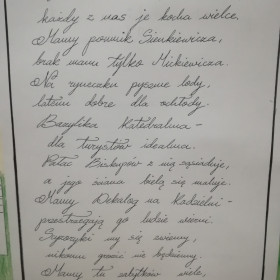 każdy z nas je kocha wielce.
Mamy pomnik Sienkiewicza,
brak mamy tylko Mickiewicza.
Na ryneczku pyszne lody,
latem dobre dla ochłody.
Bazylika Katedralna –
dla turystów idealna.
Pałac Biskupów z nią sąsiaduje,
a jego ściana bielą się maluje.
Mamy Dekalog na Kadzielni –
przestrzegają go ludzie wierni.
my się zwiemy,
nikomu
Mamy tu zabytków wiele,